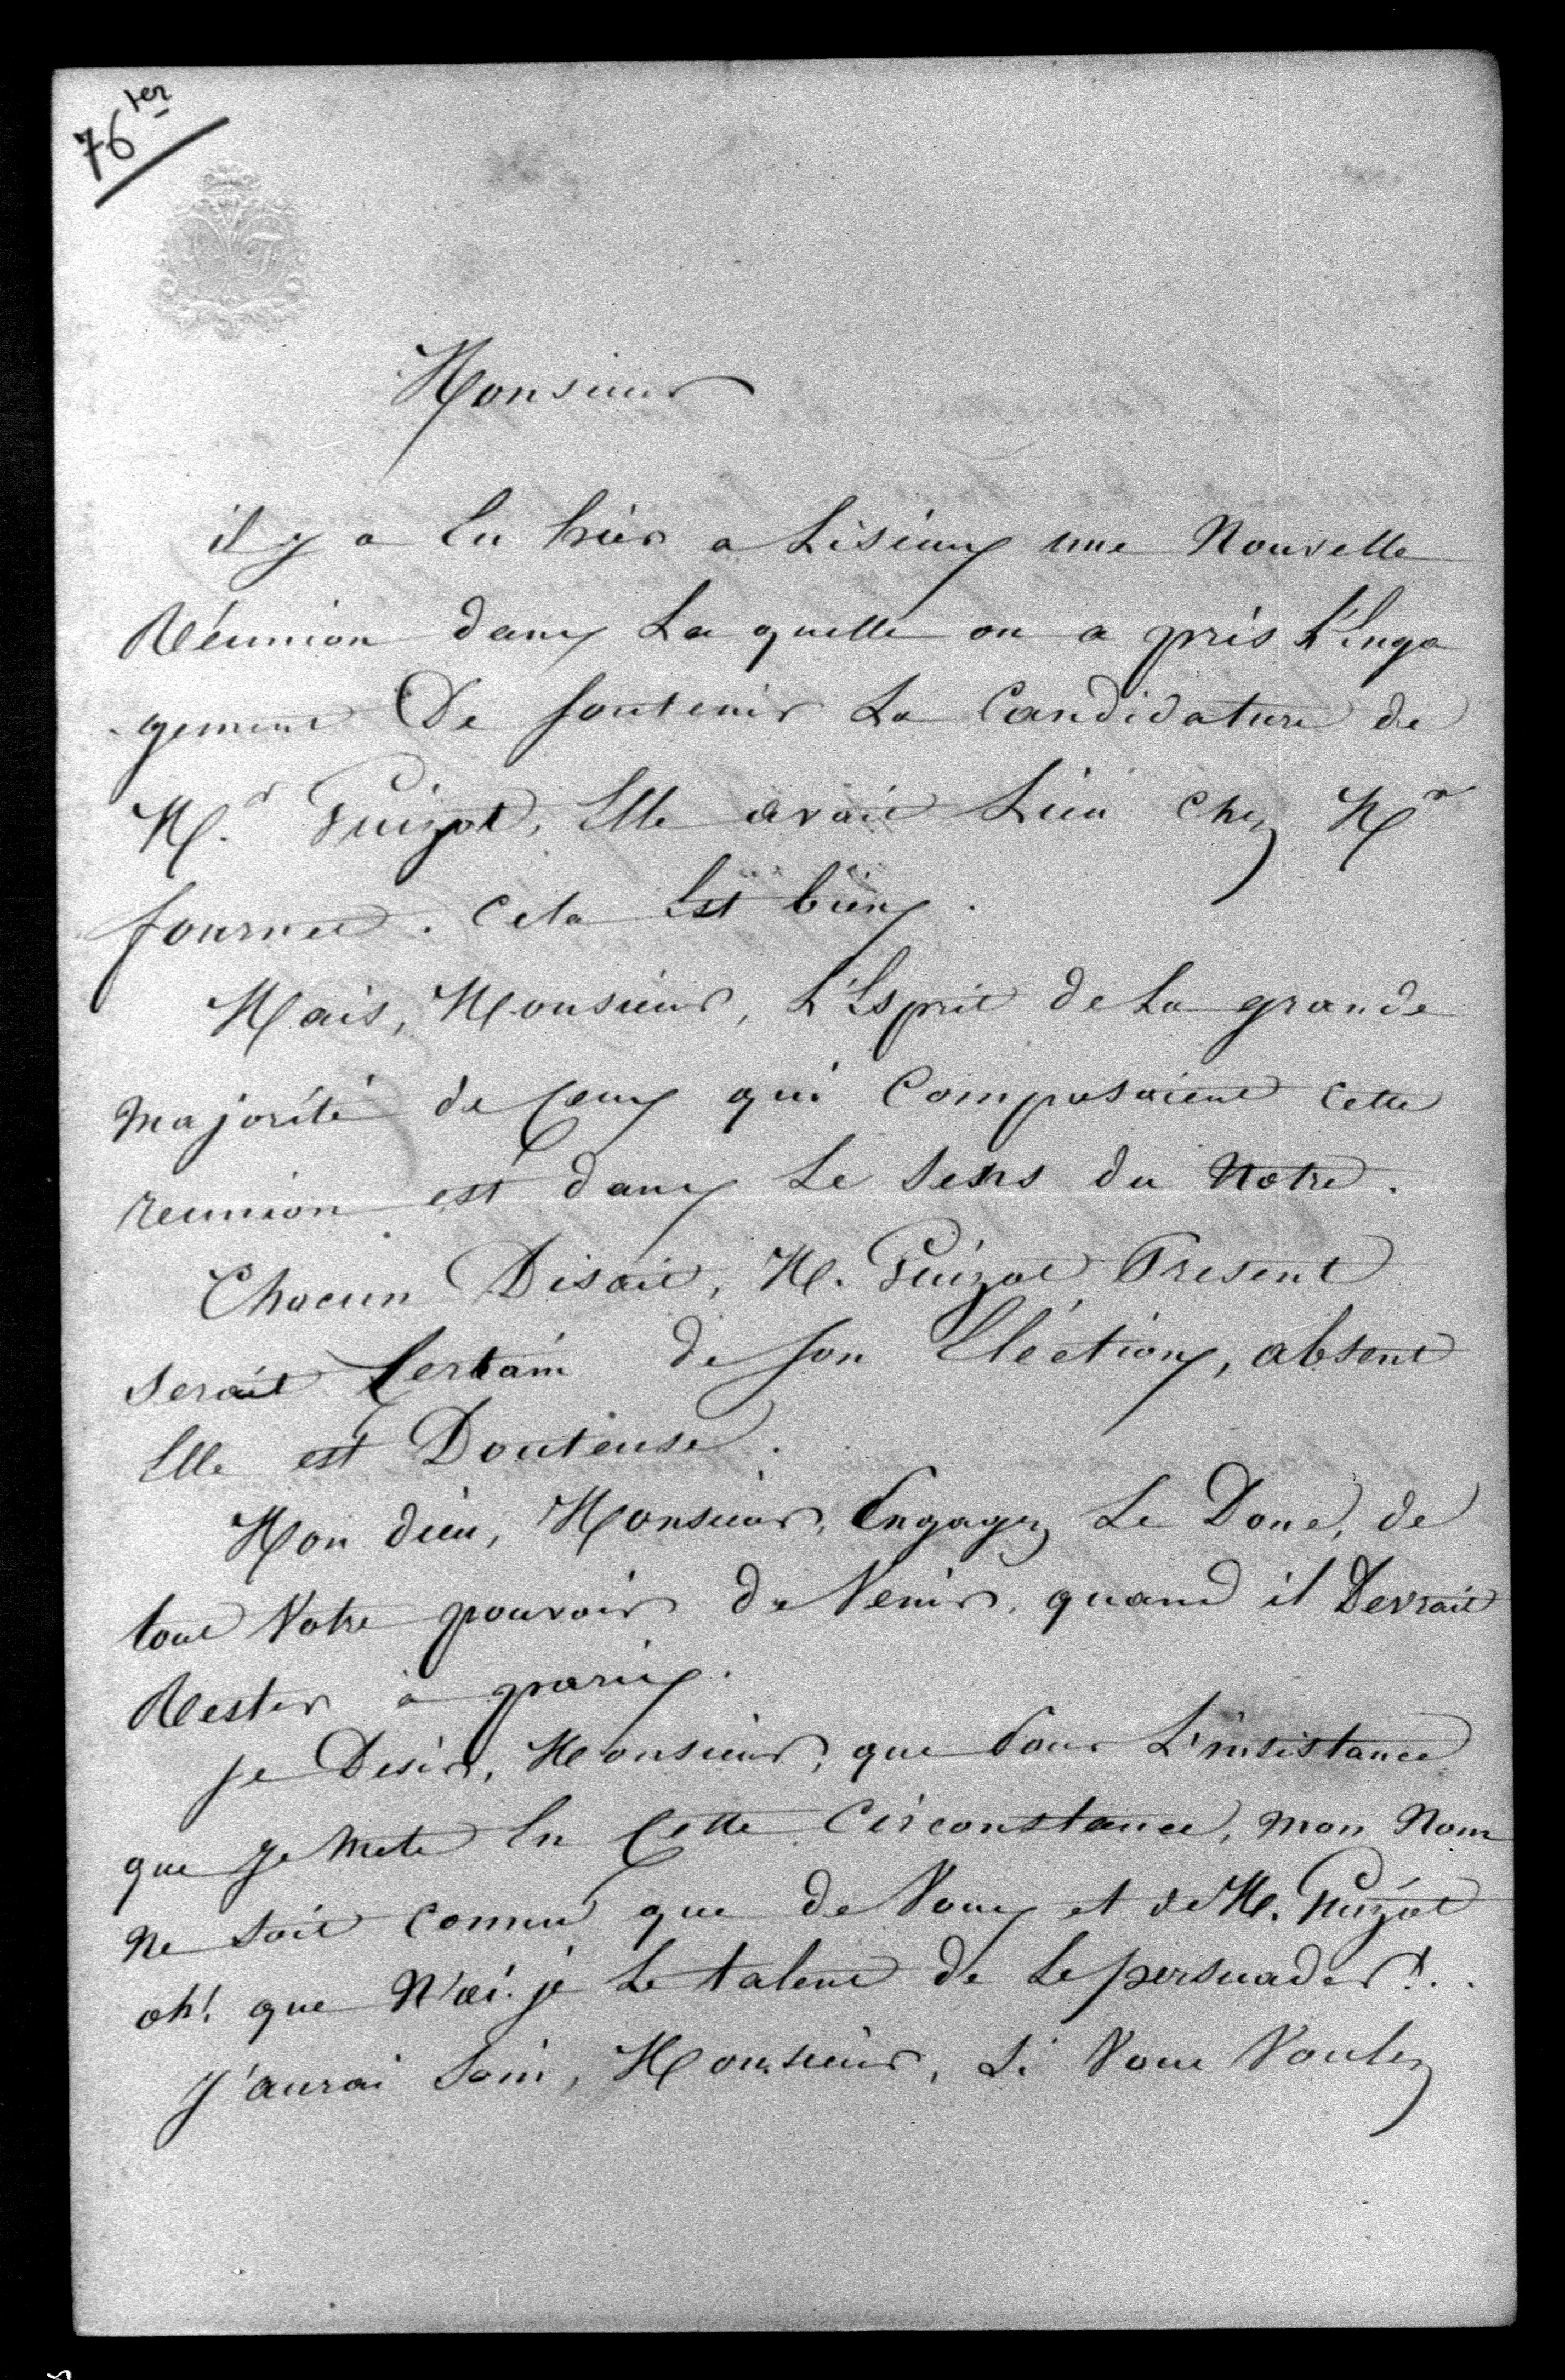 76 ter
Monsieur
il y a Eu hier a Lisieux une Nouvelle
Réunion dans La quelle on a pris L'Enga
gement De soutenir La Candidature de
Mr. Guizot, Elle avait Lieu Chez Mr
fournet. Cela Est bien.
Mais, Monsieur, L'Esprit de La grande
majorité de Ceux qui Composaient Cette
reunion est dans Le Sens du Notre.
Chacun Disait, M. Guizot Present
serait Certain de son Election, absent
Elle est Douteuse.
Mon dieu, Monsieur, Engagez Le Donc, de
tout Votre pouvoir de Venir, quand il Devrait
Rester à paris.
je Desire, Monsieur, que Pour L'insistance
que je mets En Cette Circonstance, mon Nom
ne soit connu que de Vous et de M. Guizot
oh! que N'ai-je Le talent de Le persuader!..
J'aurai Soin, Monsieur, Si Vous Voulez